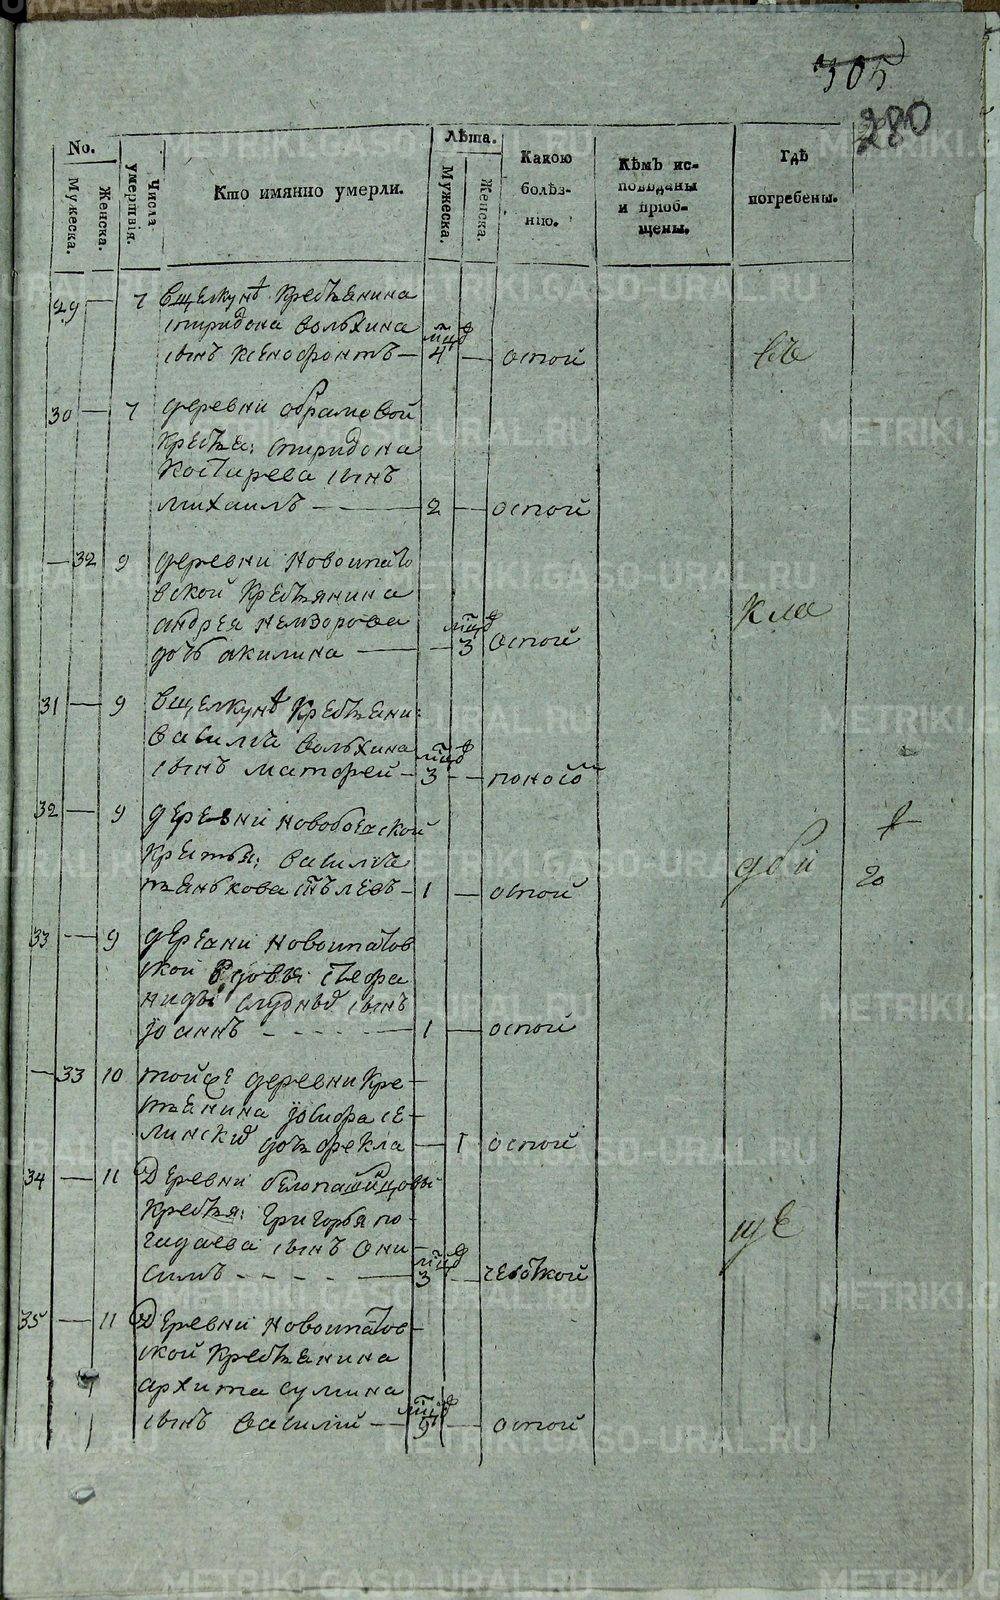 305
280
No.
Мужеска.
Женска.
Числа умертвія.
Кто имянно умерли.
Лѣта.
Мужеска.
Женска.
Какою болѣз-
нію.
Кѣмъ ис-
повѣданы
и пріоб-
щены.
Гдѣ
погребены.
29 — 7 вщелкунѣ крестьянина
спиридона вольхина
сынъ ксенофонтъ — 4 — оспой
30 — 7 деревни абрамовой
крестья: спиридона
костырева сынъ
михаилъ — 2 — оспой
— 32 9 деревни новоипато
вской крестьянина
андрея
дочь акилина — 3 оспой
31 — 9 вщелкунѣ крестьяни:
василья вольхина
сынъ матфей — 3 — поносом
32 — 9 деревни
крестья: василья
сынъ левъ — 1 — оспой
20
33 — 9 деревни новоипатов
ской вдовы стефа
ниды сынъ
іоаннъ — 1 — оспой
— 33 10 тойже деревни кре-
стьянина іосифа се-
дочь фекла — 1 оспой
34 — 11 Деревни
крестья: григорья по-
гадаева сынъ они
симъ — 3 — чесоткой
35 — 11 Деревни новоипатов-
ской крестьянина
архипа сумина
сынъ василий — 9 — оспой
METRIKI.GASO-URAL.RU